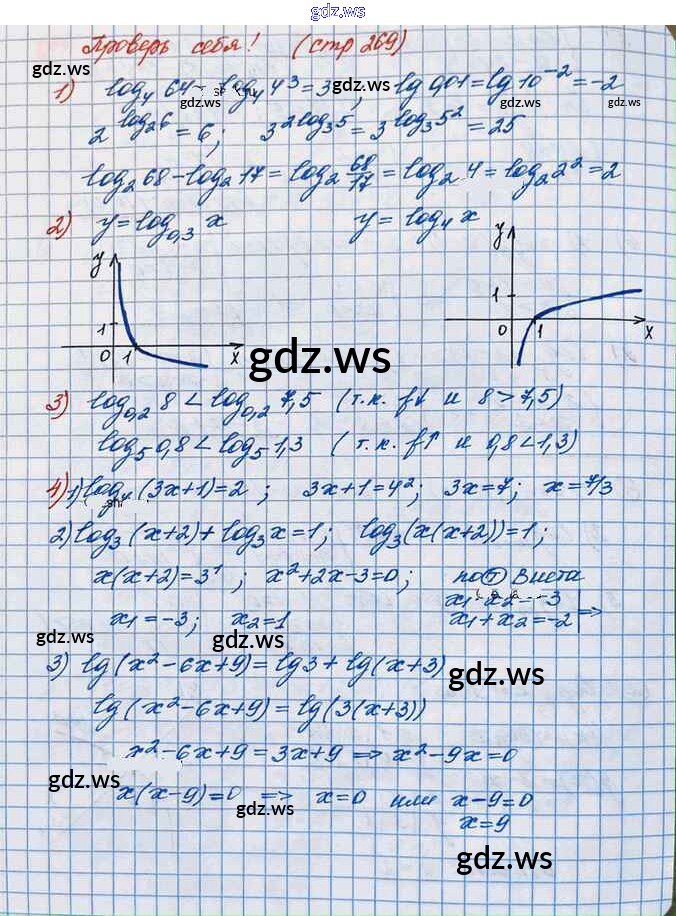 gdz.ws
Проверь себя! (стр 269)
gdz.ws
1) log₄ 64 = log₄ 4³ = 3; lg 0,01 = lg 10⁻² = -2
gdz.ws gdz.ws gdz.ws
2^(log₂6) = 6; 3^(2log₃5) = 3^(log₃5²) = 25
log₂ 68 - log₂ 17 = log₂ 68/17 = log₂ 4 = log₂ 2² = 2
2) y = log₀,₃ x y = log₄ x
y y
1 1
0 1 x 0 1 x
gdz.ws
3) log₀,₂ 8 < log₀,₂ 7,5 (т.к. f↓ и 8 > 7,5)
log₅ 0,8 < log₅ 1,3 (т.к. f↑ и 0,8 < 1,3)
4) 1) log₄ (3x+1) = 2; 3x+1 = 4²; 3x = 7; x = 7/3
2) log₃ (x+2) + log₃ x = 1; log₃(x(x+2)) = 1;
x(x+2) = 3¹; x²+2x-3=0; по Т Виета
x₁·x₂ = -3
x₁+x₂ = -2 | =>
x₁ = -3; x₂ = 1
gdz.ws gdz.ws
3) lg(x²-6x+9) = lg3 + lg(x+3)
gdz.ws
lg(x²-6x+9) = lg(3(x+3))
x²-6x+9 = 3x+9 => x²-9x=0
gdz.ws
x(x-9)=0 => x=0 или x-9=0
gdz.ws
x=9
gdz.ws
gdz.ws